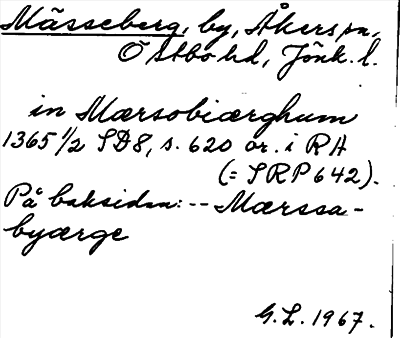 Mässeberg, by, Åkers sn,
Östbo hd, Jönk. l.
in Mærsobiærghum
1365 1/2 SD8, s. 620 or. i RA
(= SRP 642).
På baksidan: -- Mærssa-
byærge
G. L. 1967.